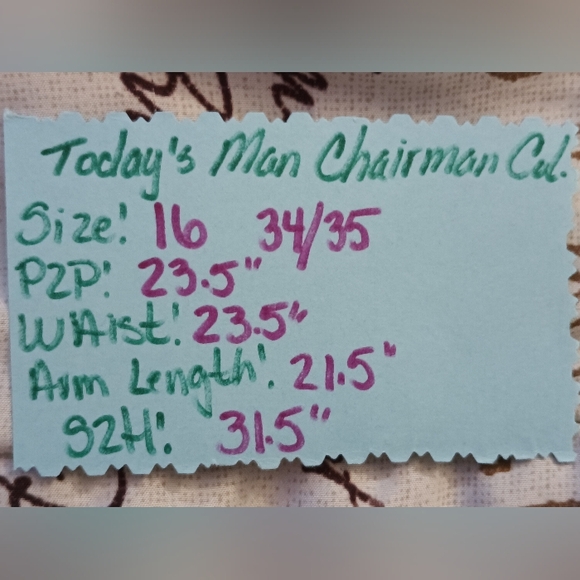 Today's Man Chairman Col.
Size: 16 34/35
P2P: 23.5"
WAist: 23.5"
Arm Length: 21.5"
S2H: 31.5"